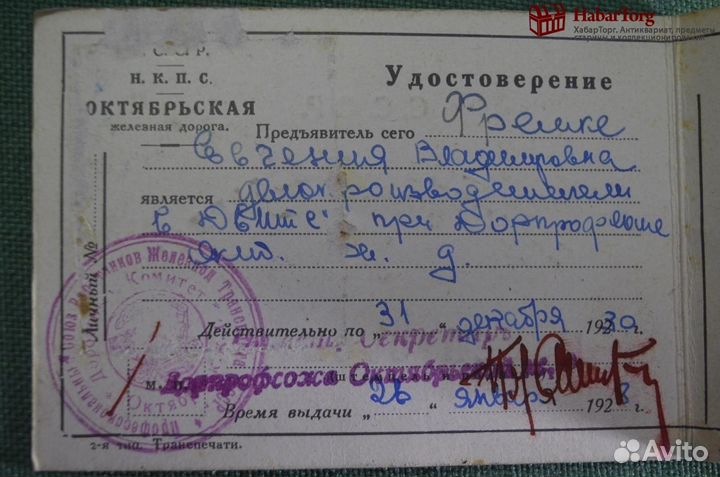 HabarTorg
ХабарТорг. Антиквариат, предметы
старины и коллекционирования
С.С.С.Р.
Н. К. П. С.
ОКТЯБРЬСКАЯ
железная дорога.
Удостоверение
Предъявитель сего Фремке
Евгения Владимировна
является делопроизводителем
при Дорпрофсоже
Окт. ж. д.
Личный №
Действительно по „31“ декабря 1930 г.
Секретарь
Дорпрофсожа Октябрьской
М. П.
Время выдачи „26“ января 1928 г.
2-я тип. Транспечати.
Профессиональный Союз Работников Железнод. Трансп.
Комитет
Avito